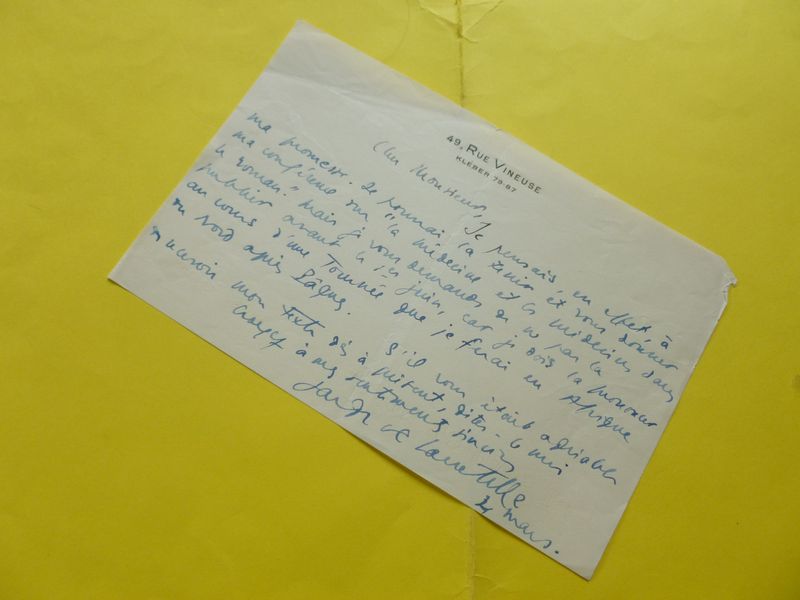 49, RUE VINEUSE
KLÉBER 79-87
Cher Monsieur,
Je pensais, en effet, à
ma promesse. Je pourrai la tenir et vous donner
ma conférence sur "la médecine et les médecins dans
le roman." Mais je vous demande de ne pas la
publier avant le 1er juin, car je dois la prononcer
au cours d'une Tournée que je ferai en Afrique
du Nord après Pâques.
S'il vous était agréable
de recevoir mon texte dès à présent, dites-le moi
Croyez à mes sentiments sincères
de Lacretelle
24 mars.